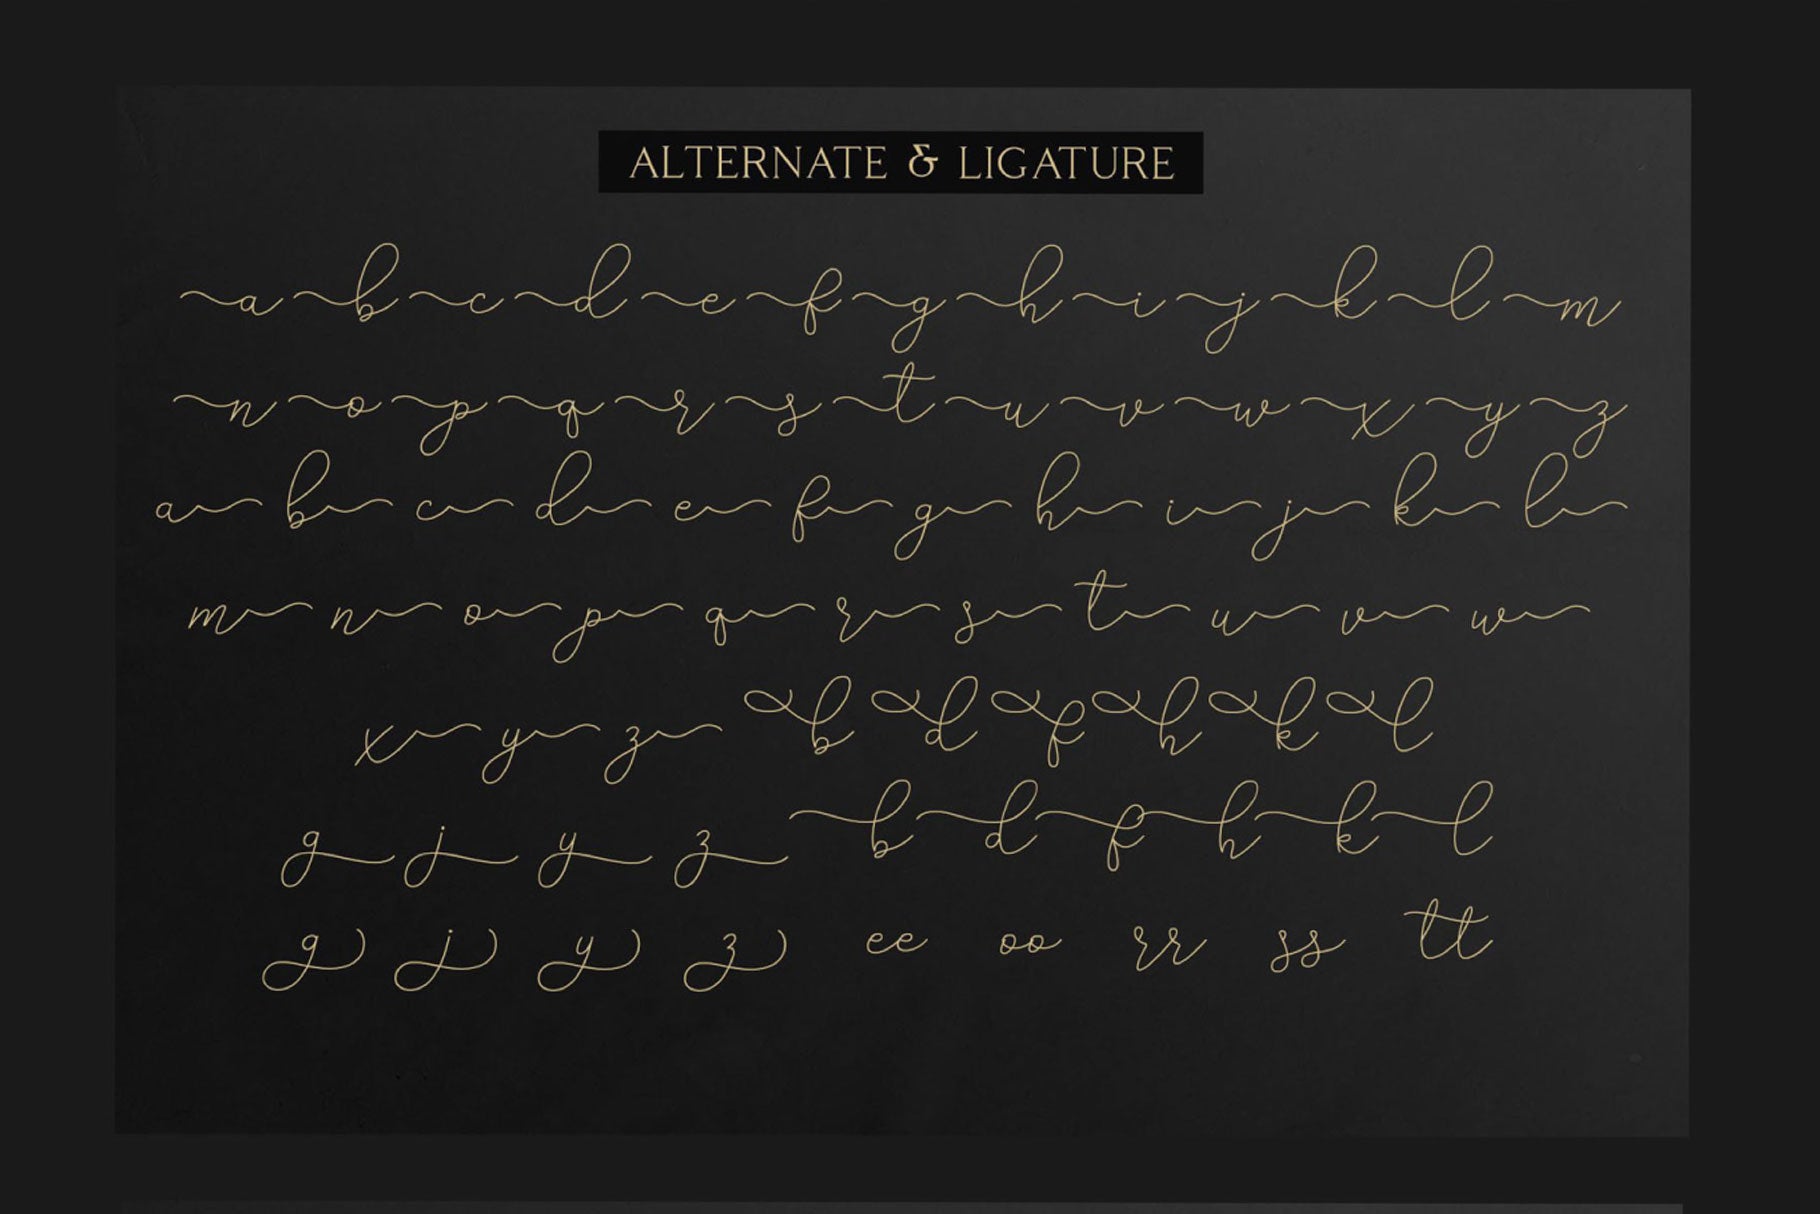 ALTERNATE & LIGATURE
a b c d e f g h i j k l m
n o p q r s t u v w x y z
a b c d e f g h i j k l
m n o p q r s t u v w
x y z b d f h k l
g j y z b d f h k l
g j y z ee oo rr ss tt